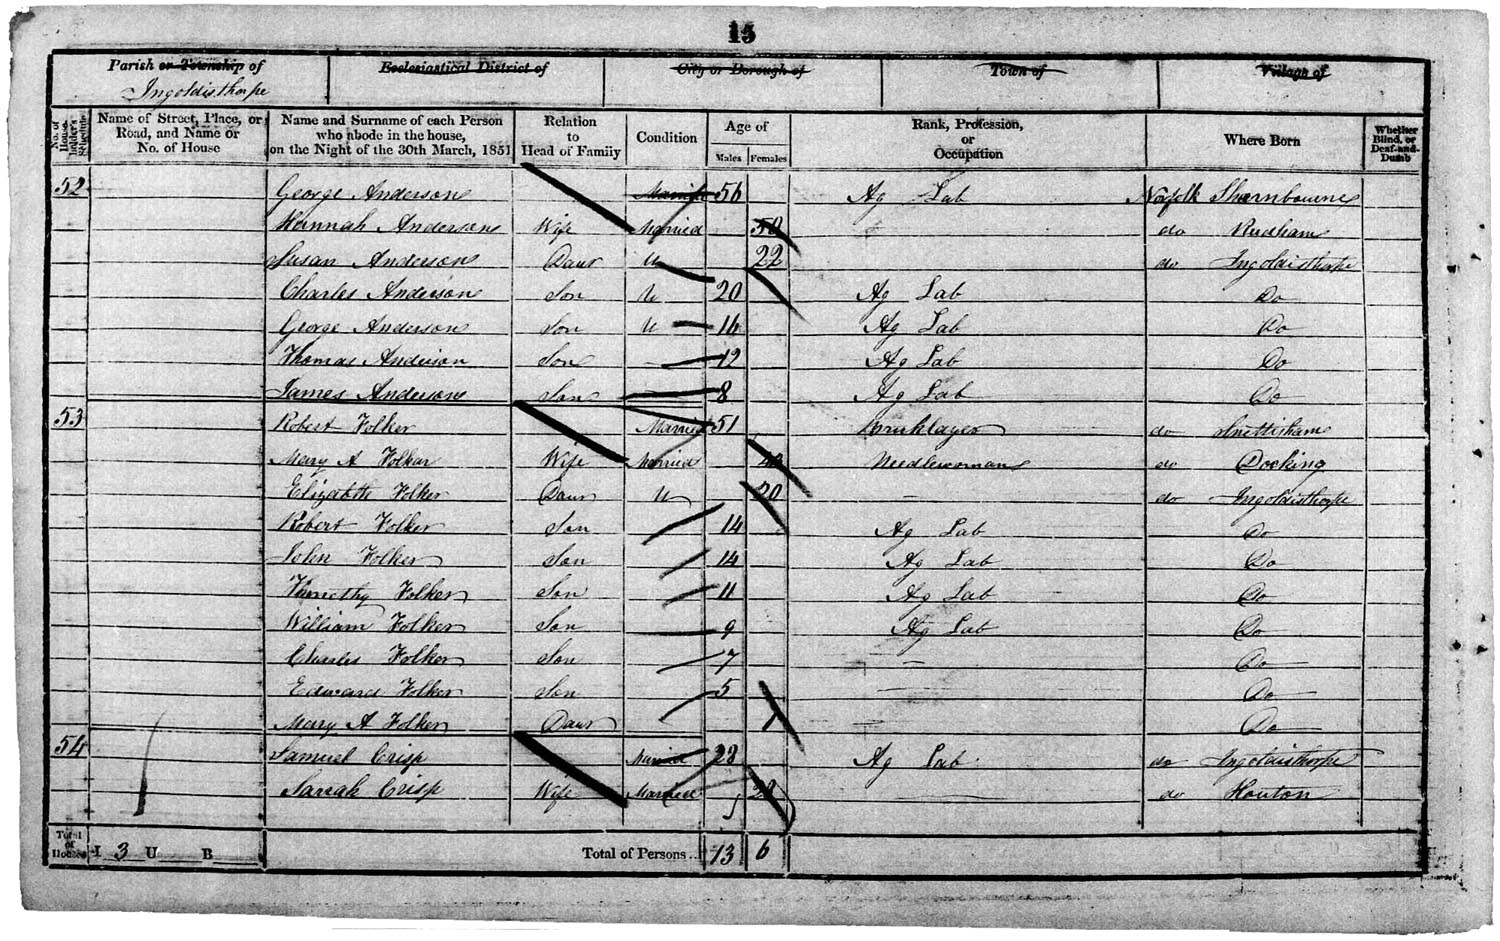 15
Parish or Township of Ecclesiastical District of City or Borough of Town of Village of
Ingoldisthorpe
No. of House-holder's Schedule
Name of Street, Place, or Road, and Name or No. of House
Name and Surname of each Person who abode in the house, on the Night of the 30th March, 1851
Relation to Head of Family
Condition
Age of
Males Females
Rank, Profession, or Occupation
Where Born
Whether Blind, or Deaf-and-Dumb
52 George Anderson Married 56 Ag Lab Norfolk Sharnbourne
Hannah Anderson Wife Married 50 do Rudham
Susan Anderson Daur U 22 do Ingoldisthorpe
Charles Anderson Son U 20 Ag Lab Do
George Anderson Son U 16 Ag Lab Do
Thomas Anderson Son 12 Ag Lab Do
James Anderson Son 8 Ag Lab Do
53 Robert Folker Married 51 Bricklayer do Snettisham
Mary A Folkar Wife Married Needlewoman do Docking
Elizabth Folker Daur U 20 do Ingoldisthorpe
Robert Folker Son 14 Ag Lab Do
John Folker Son 14 Ag Lab Do
Timothy Folker Son 11 Ag Lab Do
William Folker Son 9 Ag Lab Do
Charles Folker Son 7 Do
Edward Folker Son 5 Do
Mary A Folker Daur 1 Do
54 Samuel Crisp Married 28 Ag Lab do Ingoldisthorpe
Sarah Crisp Wife Married do Houton
Total of Houses I 3 U B Total of Persons.. 13 6